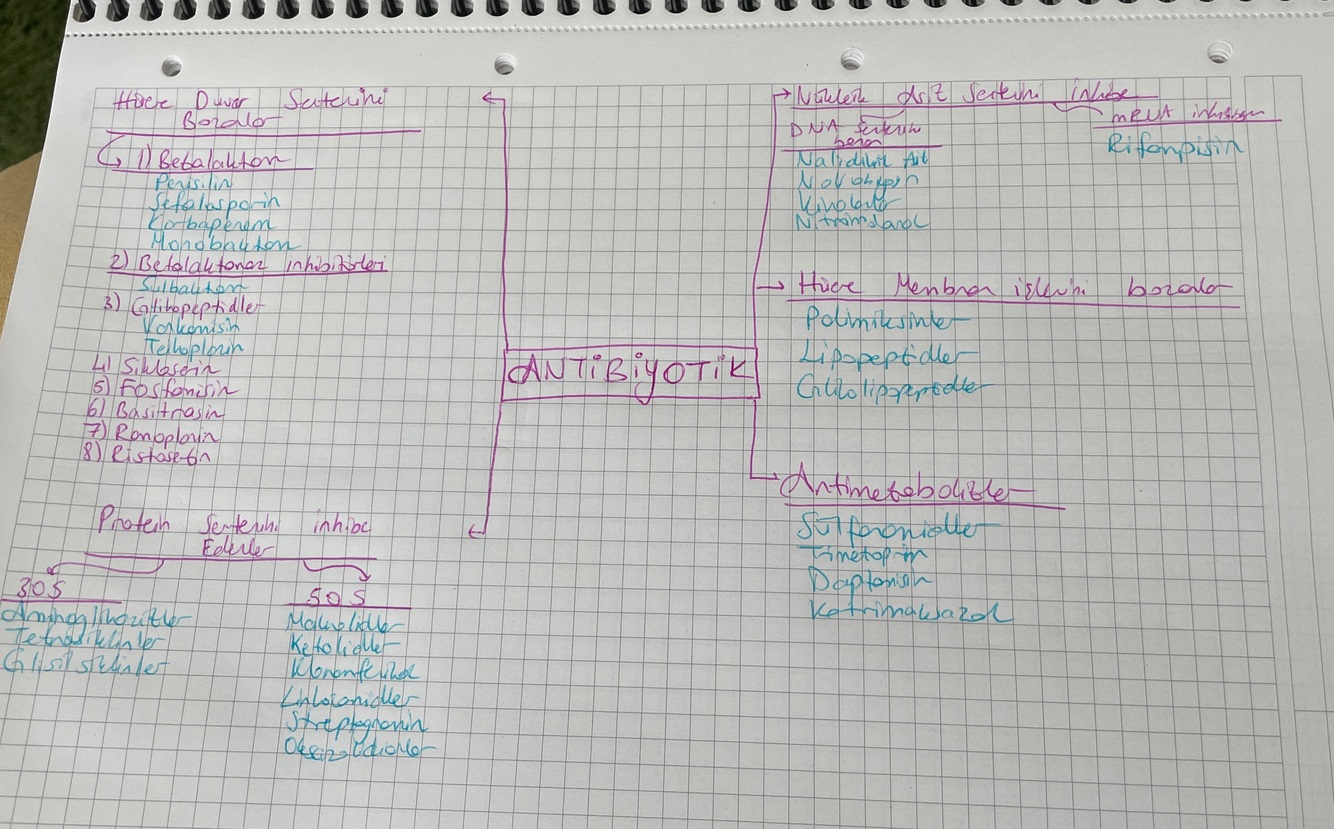 Hücre Duvar Sentezini
Bozanlar
1) Betalaktam
Penisilin
Sefalosporin
Karbapenem
Monobaktam
2) Betalaktamaz inhibitörleri
Sulbaktam
3) Glikopeptidler
Vankomisin
Teikoplanin
4) Sikloserin
5) Fosfomisin
6) Basitrasin
7) Ramoplanin
8) Ristasetin
Protein Sentezini inhibe
Ederler
30S
Aminoglikozitler
Tetrasiklinler
Glisilsiklinler
50S
Makrolidler
Ketolidler
Kloramfenikol
Linkozamidler
Streptogramin
Oksazolidionlar
ANTİBİYOTİK
Nükleik Asit Sentezini inhibe
DNA sentezini
bozan
Nalidiksik Asit
Novobiyosin
Kinolonlar
Nitroimidazol
mRNA inhibisyon
Rifampisin
Hücre Membran işlevini bozanlar
Polimiksinler
Lipopeptidler
Glikolipopeptidler
Antimetabolitler
Sülfonamidler
Trimetoprim
Daptomisin
Kotrimaksazol